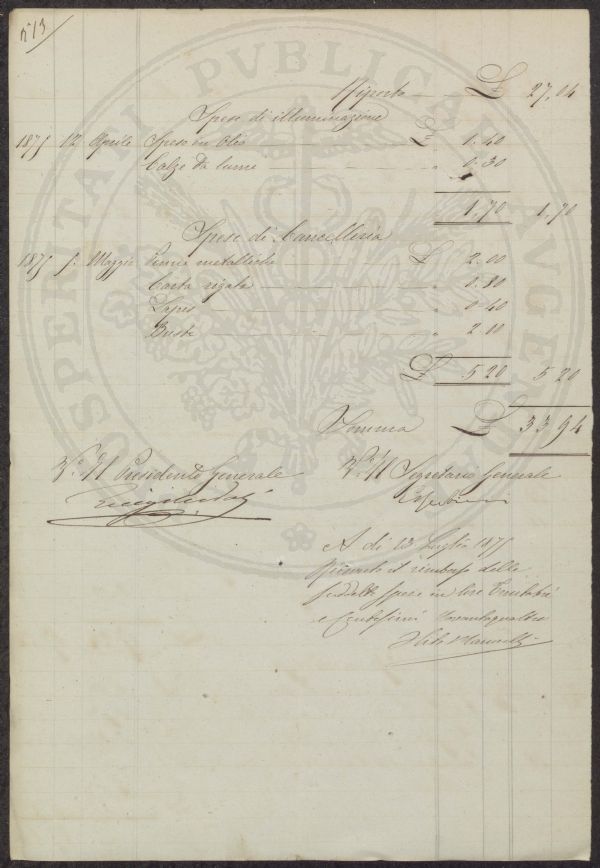 n° 13
Riporto £ 27,04
Spese di illuminazione
1875 12 Aprile Spese in Olio £ 1.40
Calze da lume " 0.30
1,70 1,70
Spese di Cancelleria
1875 5. Maggio Penne metalliche £ 2.00
Carta rigata " 0.80
Lapis " 0.40
Buste " 2.00
£ 5.20 5.20
Somma £ 33,94
V° Il Presidente Generale
V° Il Segretario Generale
A dì 13 Luglio 1875
Ricevuto il rimborso delle
suddette spese in lire Trentatré
e Centesimi novantaquattro
PROSPERITATI PVBLICAE AVGENDAE